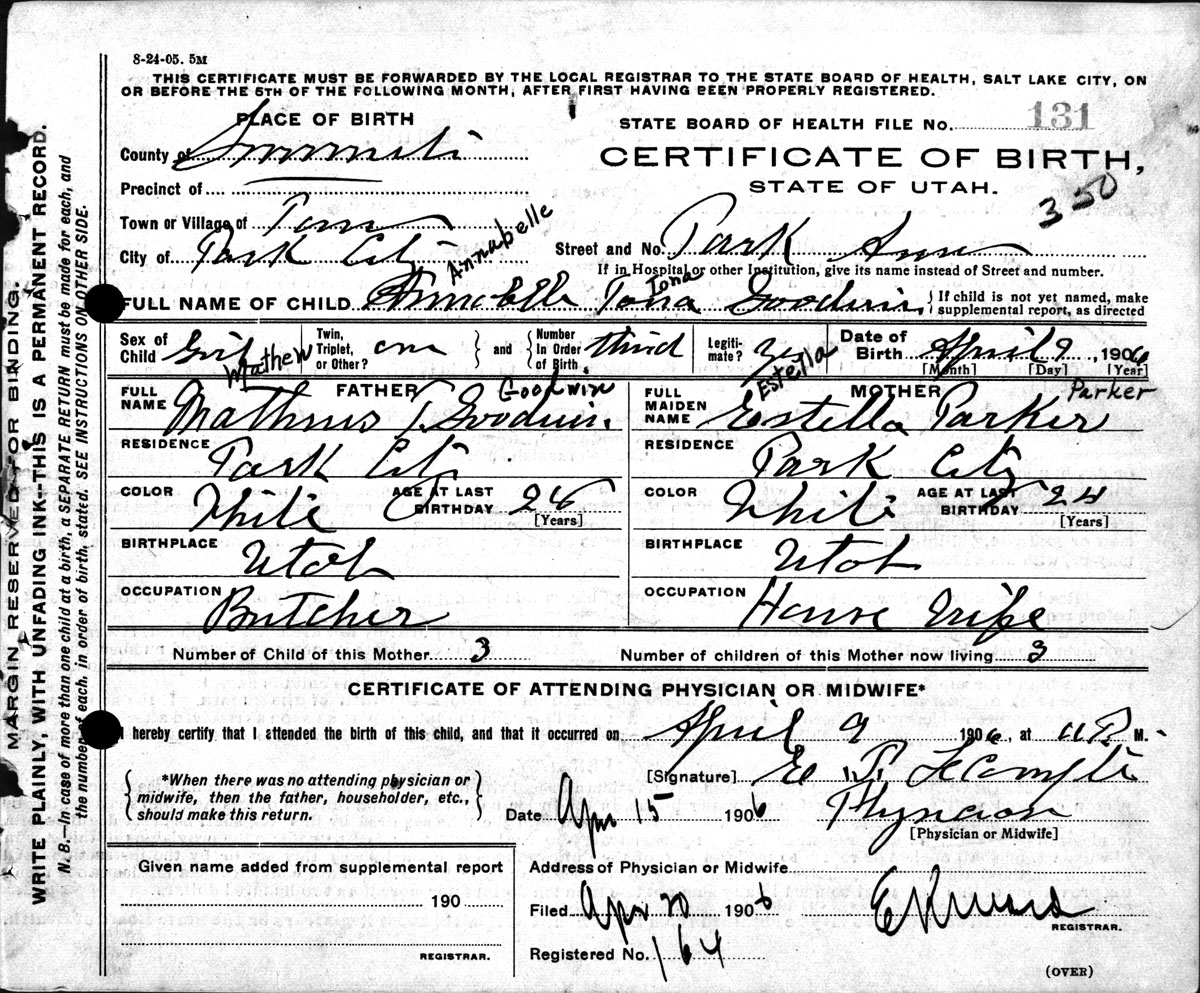 8-24-05. 5M
THIS CERTIFICATE MUST BE FORWARDED BY THE LOCAL REGISTRAR TO THE STATE BOARD OF HEALTH, SALT LAKE CITY, ON
OR BEFORE THE 5TH OF THE FOLLOWING MONTH, AFTER FIRST HAVING BEEN PROPERLY REGISTERED.
PLACE OF BIRTH
STATE BOARD OF HEALTH FILE No. 131
County of Summit
CERTIFICATE OF BIRTH,
STATE OF UTAH.
350
Precinct of
Town or Village of
City of Park City
Annabelle
Street and No. Park
If in Hospital or other Institution, give its name instead of Street and number.
Iona
FULL NAME OF CHILD Annabelle Iona Goodwin
If child is not yet named, make
supplemental report, as directed
Sex of Child Girl
Twin, Triplet, or Other? one
and
Number In Order of Birth third
Legitimate? Yes
Date of Birth April 9 1906
[Month] [Day] [Year]
Mathew
Goodwin
FULL NAME FATHER
T. Goodwin
RESIDENCE Park City
COLOR White AGE AT LAST BIRTHDAY 26 [Years]
BIRTHPLACE Utah
OCCUPATION Butcher
Estella
Parker
FULL MAIDEN NAME MOTHER
Estella Parker
RESIDENCE Park City
COLOR White AGE AT LAST BIRTHDAY 24 [Years]
BIRTHPLACE Utah
OCCUPATION House Wife
Number of Child of this Mother 3
Number of children of this Mother now living 3
CERTIFICATE OF ATTENDING PHYSICIAN OR MIDWIFE*
I hereby certify that I attended the birth of this child, and that it occurred on April 9 1906, at 11 P. M.
*When there was no attending physician or
midwife, then the father, householder, etc.,
should make this return.
[Signature] E. P. LeCompte
Date Apr 15 1906 Physician
[Physician or Midwife]
Given name added from supplemental report
190
REGISTRAR.
Address of Physician or Midwife
Filed Apr 20 1906
REGISTRAR.
Registered No. 164
(OVER)
MARGIN RESERVED FOR BINDING.
WRITE PLAINLY, WITH UNFADING INK--THIS IS A PERMANENT RECORD.
N. B.--In case of more than one child at a birth, a SEPARATE RETURN must be made for each, and
the number of each, in order of birth, stated. SEE INSTRUCTIONS ON OTHER SIDE.